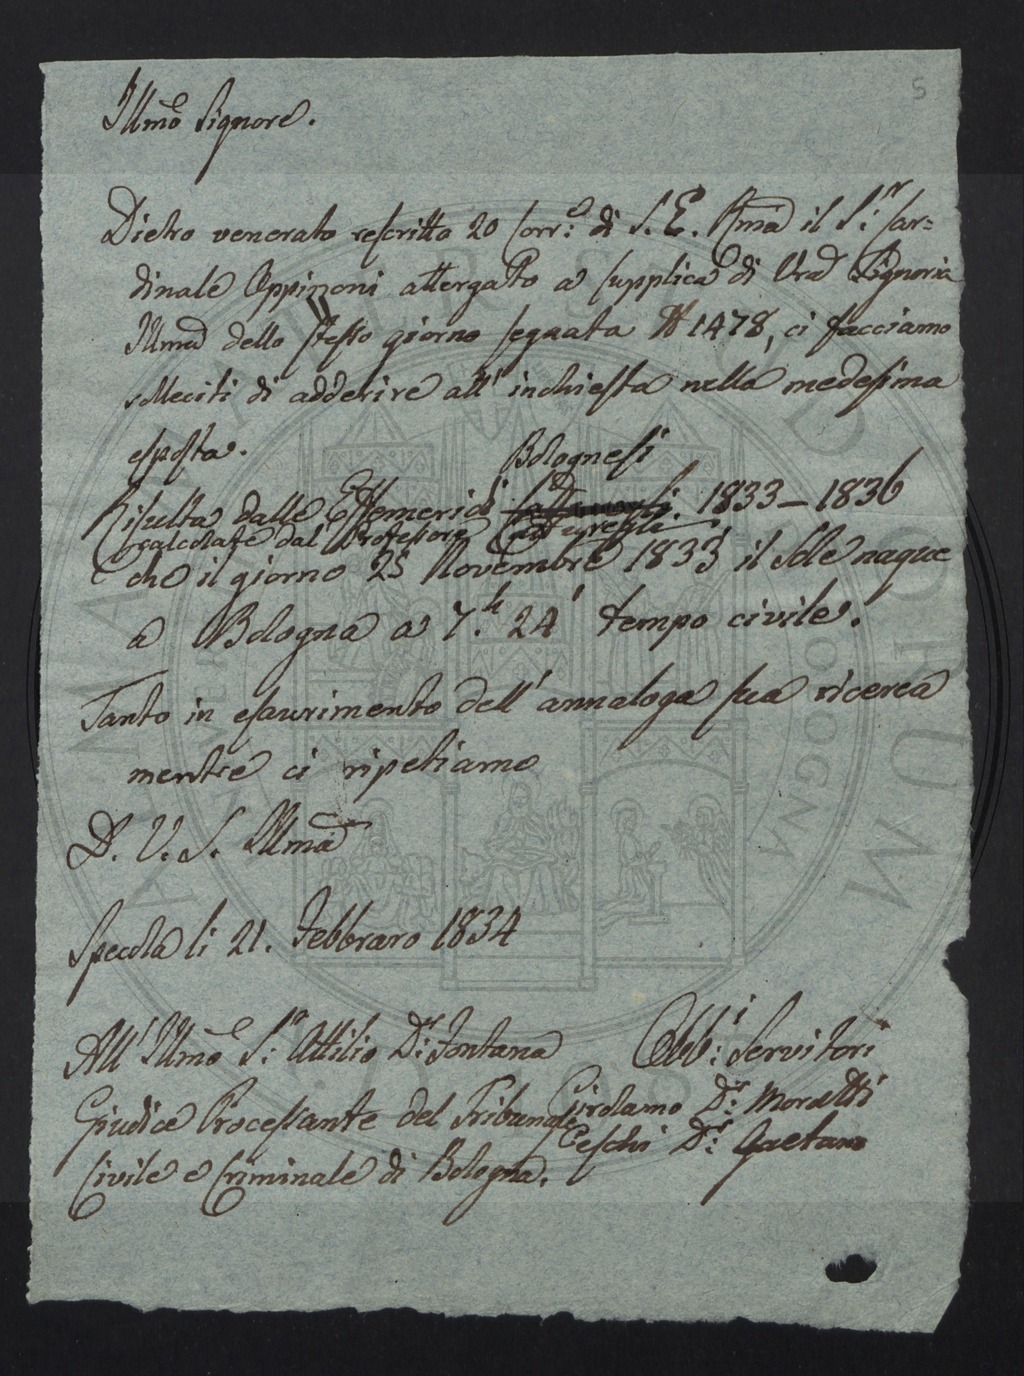 5
Illmo Signore.
Dietro venerato rescritto 20 Corr.e di S. E. Rma il S:r Car=
dinale Oppizzoni attergato a supplica di Vra Signoria
Illma dello stesso giorno segnata N 1478, ci facciamo
solleciti di adderire all' inchiesta nella medesima
esposta.
Bolognesi
Risulta dalle Effemeridi 1833 – 1836
calcolate dal Professore Caturegli
che il giorno 25 Novembre 1833 il Sole naque
a Bologna a 7.h 24' tempo civile.
Tanto in esaurimento dell' annaloga sua ricerca
mentre ci ripetiamo
D. V. S. Illma
Specola li 21. Febbraro 1834
All' Illmo S:r Attilio D:r Fontana
Giudice Processante del Tribunale
Civile e Criminale di Bologna.
Obb:i Servitori
Girolamo D:r Moratti
Ceschi D:r Gaetano
ALMA MATER STUDIORUM